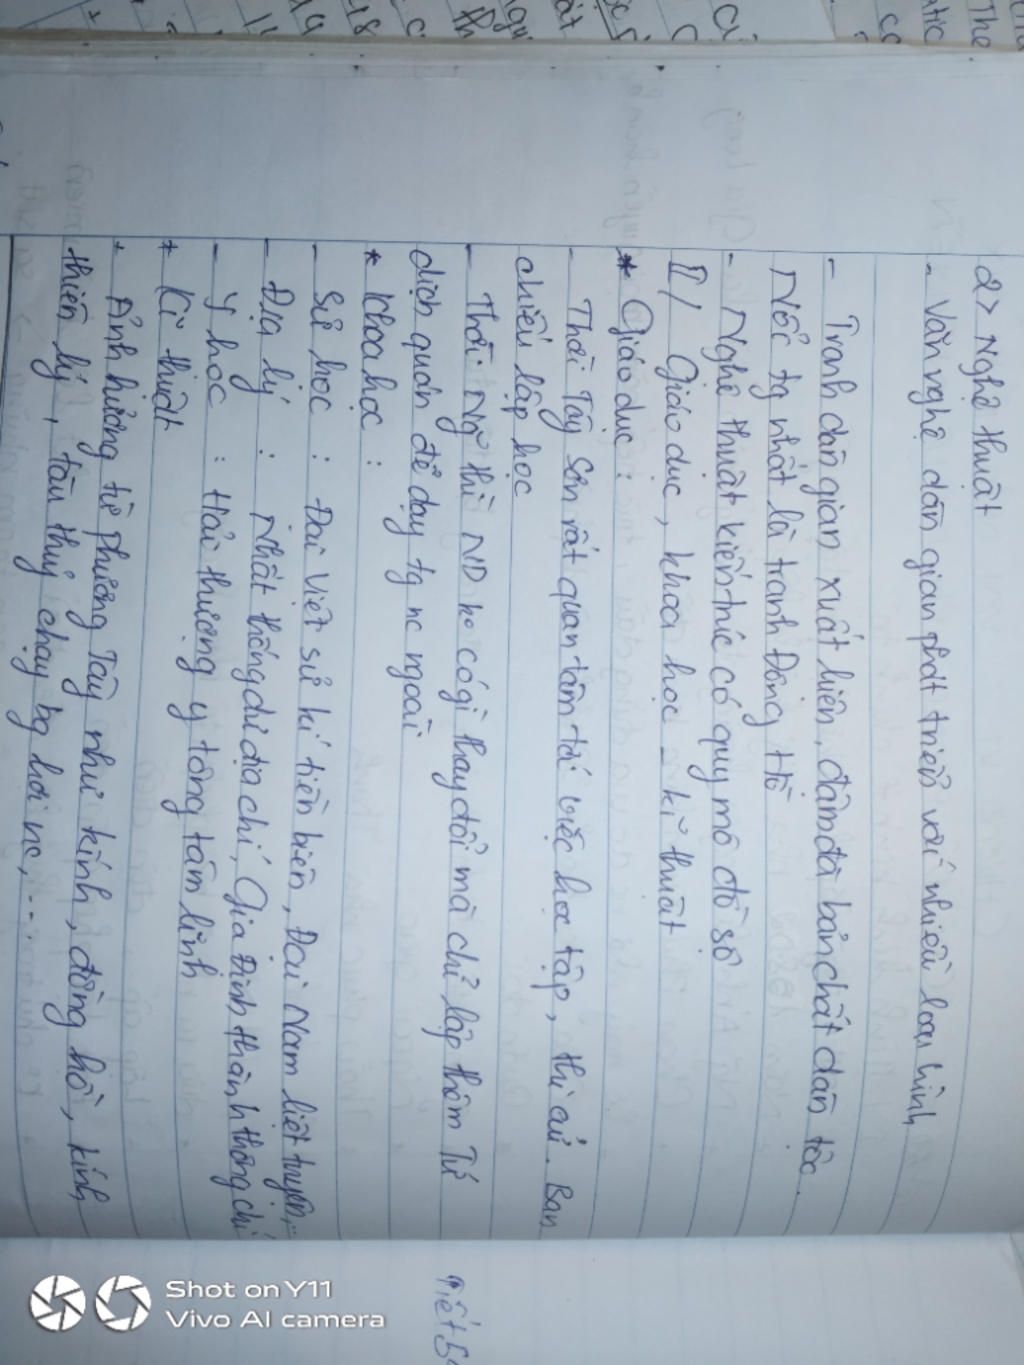 2> Nghệ thuật
- Văn nghệ dân gian phát triển với nhiều loại hình
- Tranh dân gian xuất hiện, đậm đà bản chất dân tộc.
Nổi tg nhất là tranh Đông Hồ
- Nghệ thuật kiến trúc có quy mô đồ sộ
II/ Giáo dục, khoa học - kĩ thuật
* Giáo dục:
- Thời Tây Sơn rất quan tâm tới việc học tập, thi cử. Ban
chiếu lập học
- Thời Ng~ thì ND ko có gì thay đổi mà chỉ lập thêm Tứ
dịch quán để dạy tg nc ngoài
* Khoa học:
- Sử học: Đại Việt sử kí tiền biên, Đại Nam liệt truyện,...
- Địa lý: Nhất thống dư địa chí, Gia Định thành thông chí
- Y học: Hải thượng y tông tâm lĩnh
* Kĩ thuật
+ Ảnh hưởng từ phương Tây như kính, đồng hồ, kính
thiên lý, tàu thuỷ chạy bg hơi nc,...
Tiết 5
Shot on Y11
Vivo AI camera